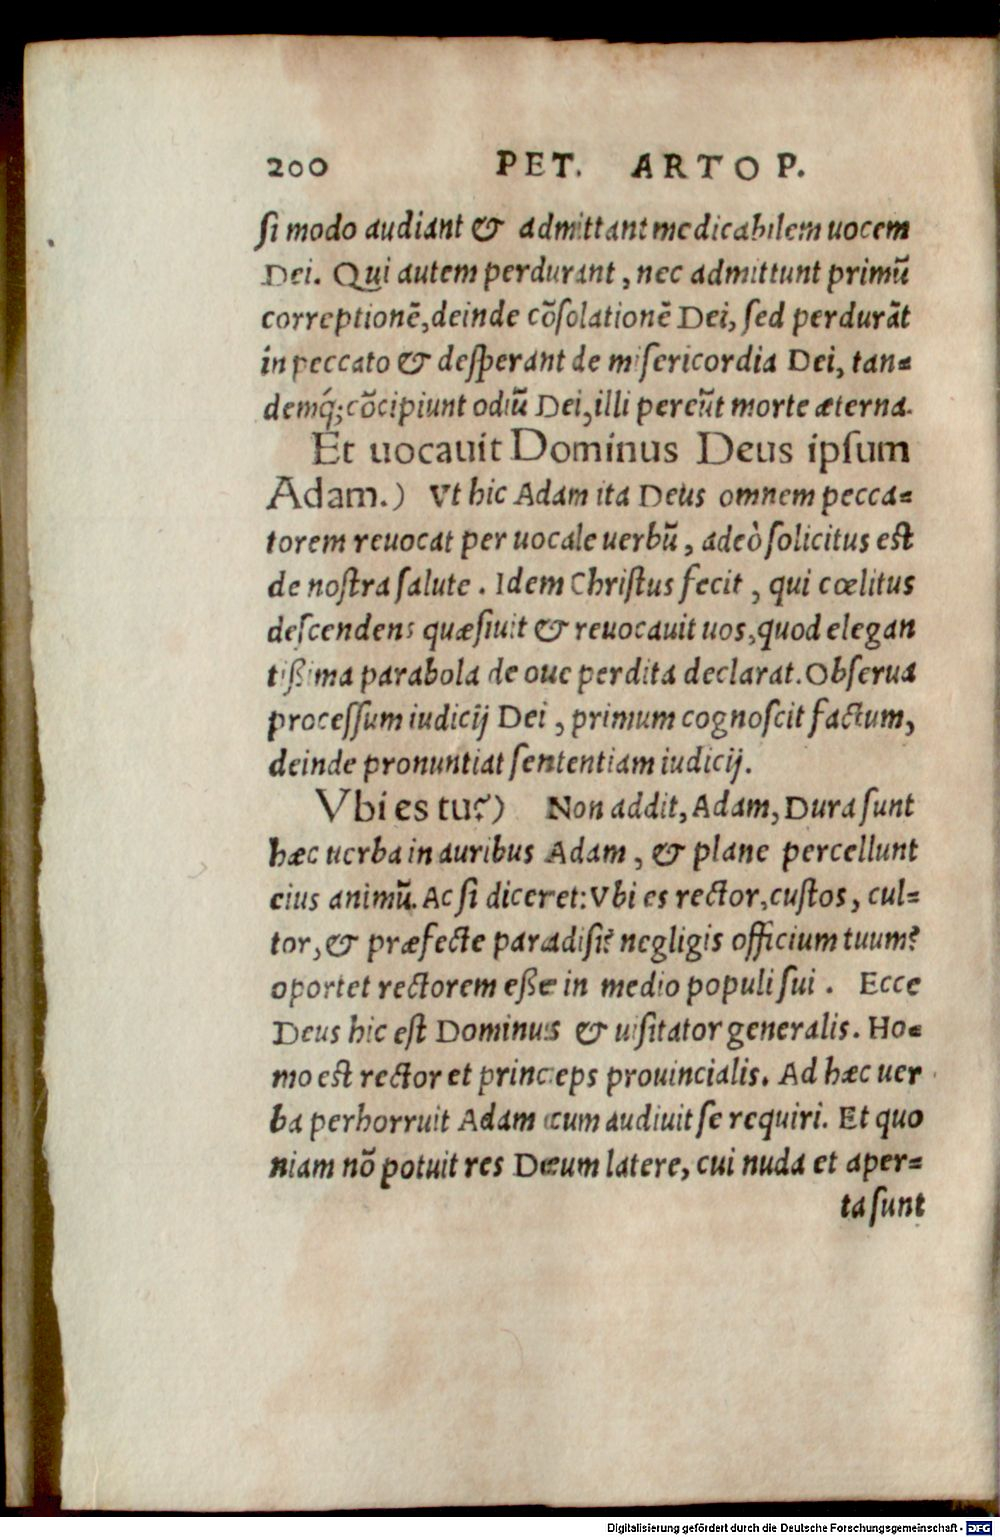 200 PET. ARTOP.
ſi modo audiant & admittant medicabilem uocem
Dei. Qui autem perdurant, nec admittunt primū
correptionē, deinde cōſolationē Dei, ſed perdurāt
in peccato & deſperant de miſericordia Dei, tan=
demq́; cōcipiunt odiū Dei, illi pereūt morte æterna.
Et uocauit Dominus Deus ipſum
Adam.) Vt hic Adam ita Deus omnem pecca=
torem reuocat per uocale uerbū, adeò ſolicitus eſt
de noſtra ſalute. Idem Chriſtus fecit, qui cœlitus
deſcendens quæſiuit & reuocauit uos, quod elegan
tißima parabola de oue perdita declarat. Obſerua
proceſſum iudicij Dei, primum cognoſcit factum,
deinde pronuntiat ſententiam iudicij.
Vbi es tu?) Non addit, Adam, Dura ſunt
hæc uerba in auribus Adam, & plane percellunt
eius animū. Ac ſi diceret: Vbi es rector, cuſtos, cul=
tor, & præfecte paradiſi? negligis officium tuum?
oportet rectorem eße in medio populi ſui. Ecce
Deus hic eſt Dominus & uiſitator generalis. Ho=
mo eſt rector et princeps prouincialis. Ad hæc uer
ba perhorruit Adam cum audiuit ſe requiri. Et quo
niam nō potuit res Deum latere, cui nuda et aper=
ta ſunt
Digitalisierung gefördert durch die Deutsche Forschungsgemeinschaft - DFG